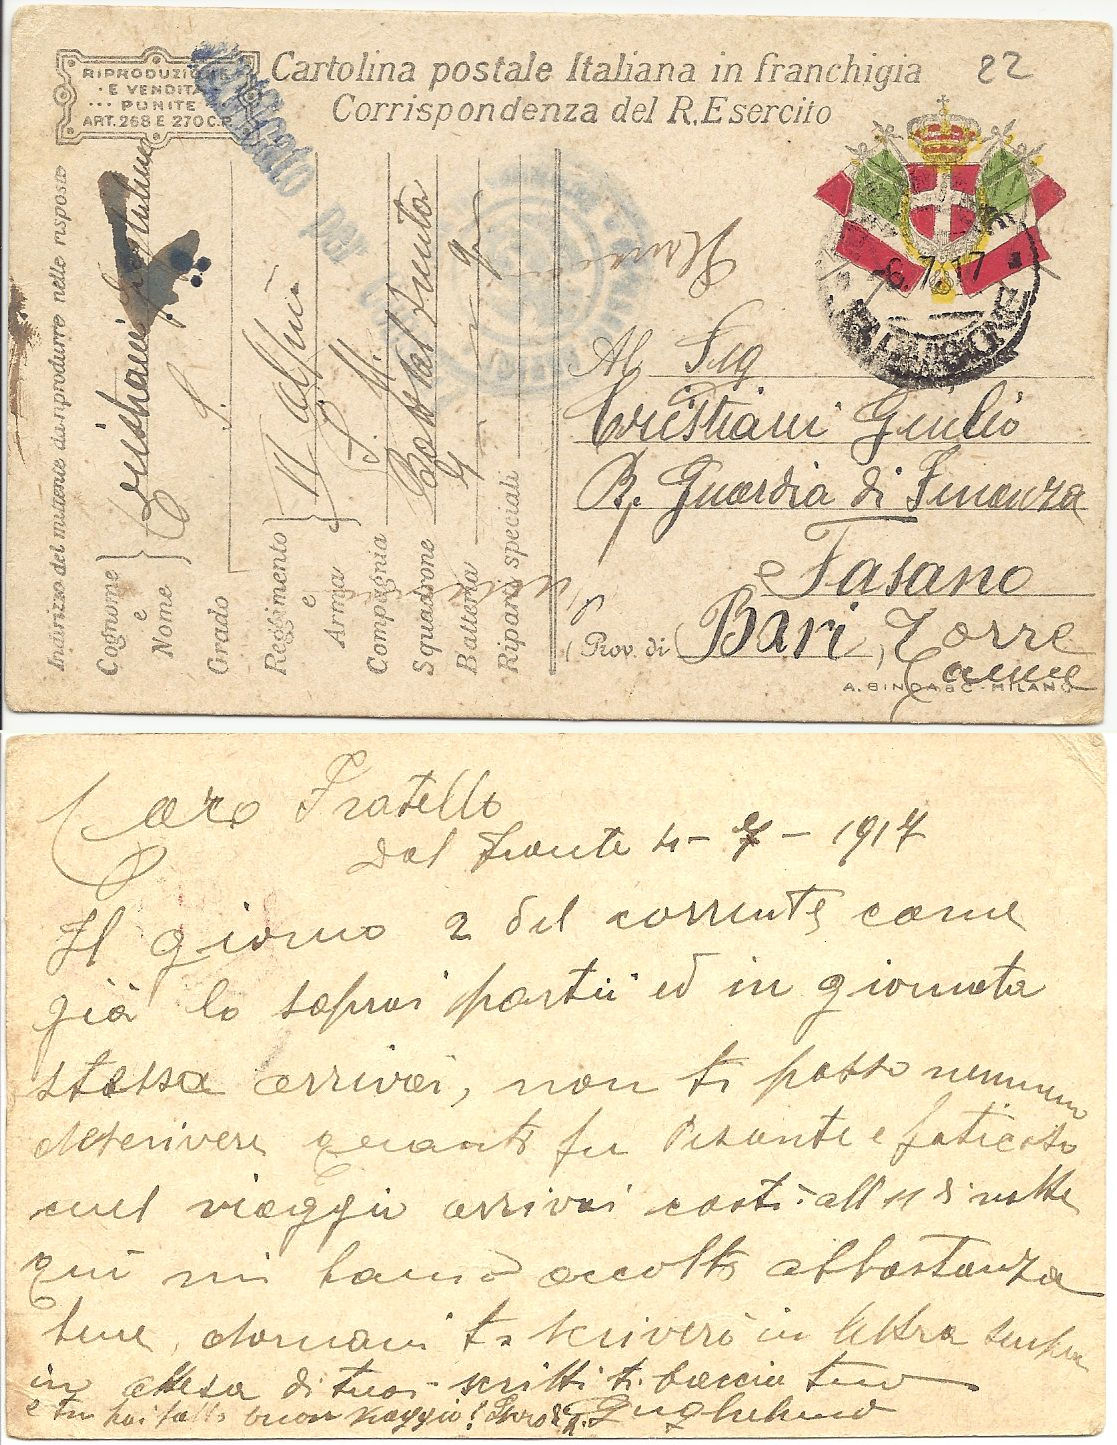 Cartolina postale Italiana in franchigia
Corrispondenza del R. Esercito
22
RIPRODUZIONE
E VENDITA
PUNITE
ART. 268 E 270 C.P.
Verificato per
Indirizzo del mittente da riprodurre nelle risposte
Cognome e Nome Cristiani Guglielmo
Grado S.
Reggimento e Arma
Compagnia S. M.
Squadrone
Batteria 4
Riparti speciali
6.7.17
Al Sig
Cristiani Giulio
R. Guardia di Finanza
Fasano
(Prov. di Bari, Torre
Canne
A. BINDA & C - MILANO
Caro Fratello
Dal fronte 4 - 7 - 1917
Il giorno 2 del corrente come
già lo saprai partii ed in giornata
stessa arrivai, non ti posso nemmeno
descrivere quanto fu pesante e faticoso
quel viaggio arrivai costì all 11 di notte
quì mi hanno accolto abbastanza
bene, domani ti scriverò in lettera
in attesa di tuoi scritti ti baccia tuo
e tu hai fatto buon viaggio? Guglielmo